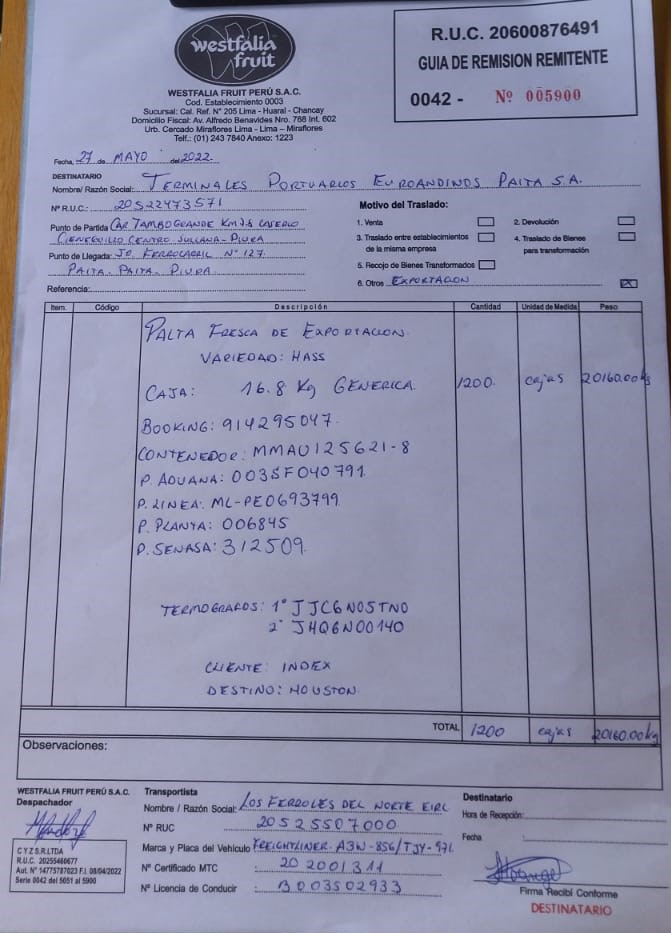 westfalia
fruit
WESTFALIA FRUIT PERÚ S.A.C.
Cod. Establecimiento 0003
Sucursal: Cal. Ref. N° 205 Lima - Huaral - Chancay
Domicilio Fiscal: Av. Alfredo Benavides Nro. 768 Int. 602
Urb. Cercado Miraflores Lima - Lima – Miraflores
Telf.: (01) 243 7840 Anexo: 1223
R.U.C. 20600876491
GUIA DE REMISION REMITENTE
0042 - Nº 005900
Fecha, 27 de MAYO del 2022.
DESTINATARIO
Nombre/ Razón Social: TERMINALES PORTUARIOS EUROANDINOS PAITA S.A.
N° R.U.C.: 20522473571
Punto de Partida CAR TAMBOGRANDE KM 7.5 CASERIO
CIENEGUILLO CENTRO SULLANA - PIURA
Punto de Llegada: JO. FERROCARRIL N° 127.
PAITA - PAITA - PIURA
Referencia:
Motivo del Traslado:
1. Venta
2. Devolución
3. Traslado entre establecimientos de la misma empresa
4. Traslado de Bienes para transformación
5. Recojo de Bienes Transformados
6. Otros EXPORTACION
Item. Código Descripción Cantidad Unidad de Medida Peso
PALTA FRESCA DE EXPORTACION.
VARIEDAD: HASS
CAJA: 16.8 Kg GENERICA. 1200. cajas 20160.00kg
BOOKING: 914295047.
CONTENEDOR: MMAU125621-8
P. ADUANA: 003SF040791.
P. LINEA: ML-PE0693799.
P. PLANTA: 006845
P. SENASA: 312509.
TERMOGRAFOS: 1° JJC6N05TN0
2° JHQ6N00140
CLIENTE: INDEX
DESTINO: HOUSTON.
TOTAL 1200 cajas 20160.00kg
Observaciones:
WESTFALIA FRUIT PERÚ S.A.C.
Despachador
C Y Z S.R.LTDA
R.U.C. 20255466677
Aut. N° 14775787023 F.I. 08/04/2022
Serie 0042 del 5051 al 5900
Transportista
Nombre / Razón Social: LOS FERROLES DEL NORTE EIRL
N° RUC : 20525507000
Marca y Placa del Vehículo FREIGHTLINER - A3W-856/TJY-971
N° Certificado MTC : 202001311
N° Licencia de Conducir : B003502933
Destinatario
Hora de Recepción:
Fecha :
Firma Recibí Conforme
DESTINATARIO